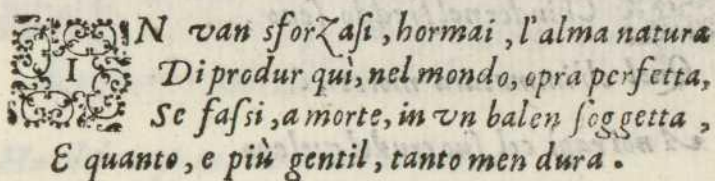 IN van sforzaſi, hormai, l'alma natura
Di produr quì, nel mondo, opra perfetta,
Se faſsi, a morte, in vn balen ſoggetta,
E quanto, e più gentil, tanto men dura.